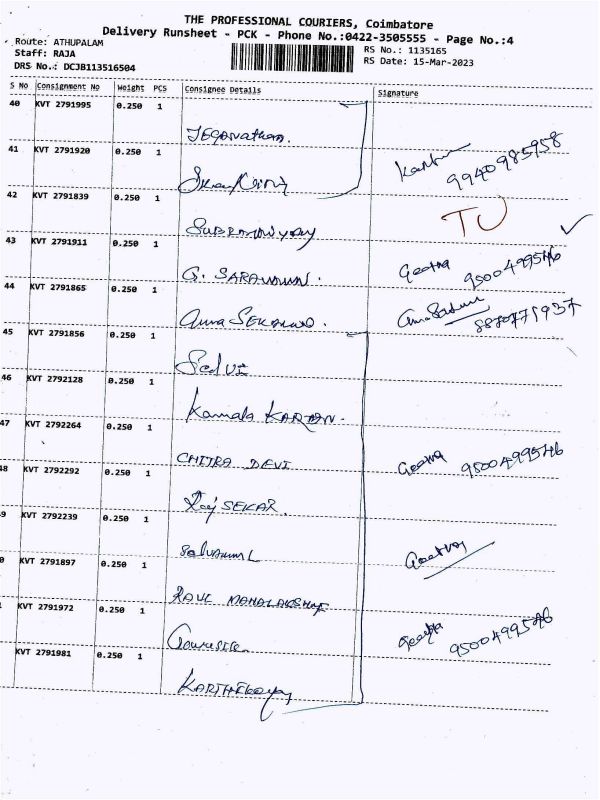 THE PROFESSIONAL COURIERS, Coimbatore
Delivery Runsheet - PCK - Phone No.:0422-3505555 - Page No.:4
Route: ATHUPALAM
RS No.: 1135165
Staff: RAJA
RS Date: 15-Mar-2023
DRS No.: DCJB113516504
S No Consignment No Weight PCS Consignee Details Signature
40 KVT 2791995 0.250 1
Jeganathan.
41 KVT 2791920 0.250 1
9940985958
42 KVT 2791839 0.250 1
TU
43 KVT 2791911 0.250 1
G. SARAVANAN. Geetha 9500499546
44 KVT 2791865 0.250 1
Anna SEKARAN. 8870771937
45 KVT 2791856 0.250 1
SelVI
46 KVT 2792128 0.250 1
Kamala KARAN.
47 KVT 2792264 0.250 1
CHITRA DEVI Geetha 9500499546
48 KVT 2792292 0.250 1
Raj SEKAR.
9 KVT 2792239 0.250 1
Geetha
0 KVT 2791897 0.250 1
MAHALAKSHMI
KVT 2791972 0.250 1
Geetha 9500499546
KVT 2791981 0.250 1